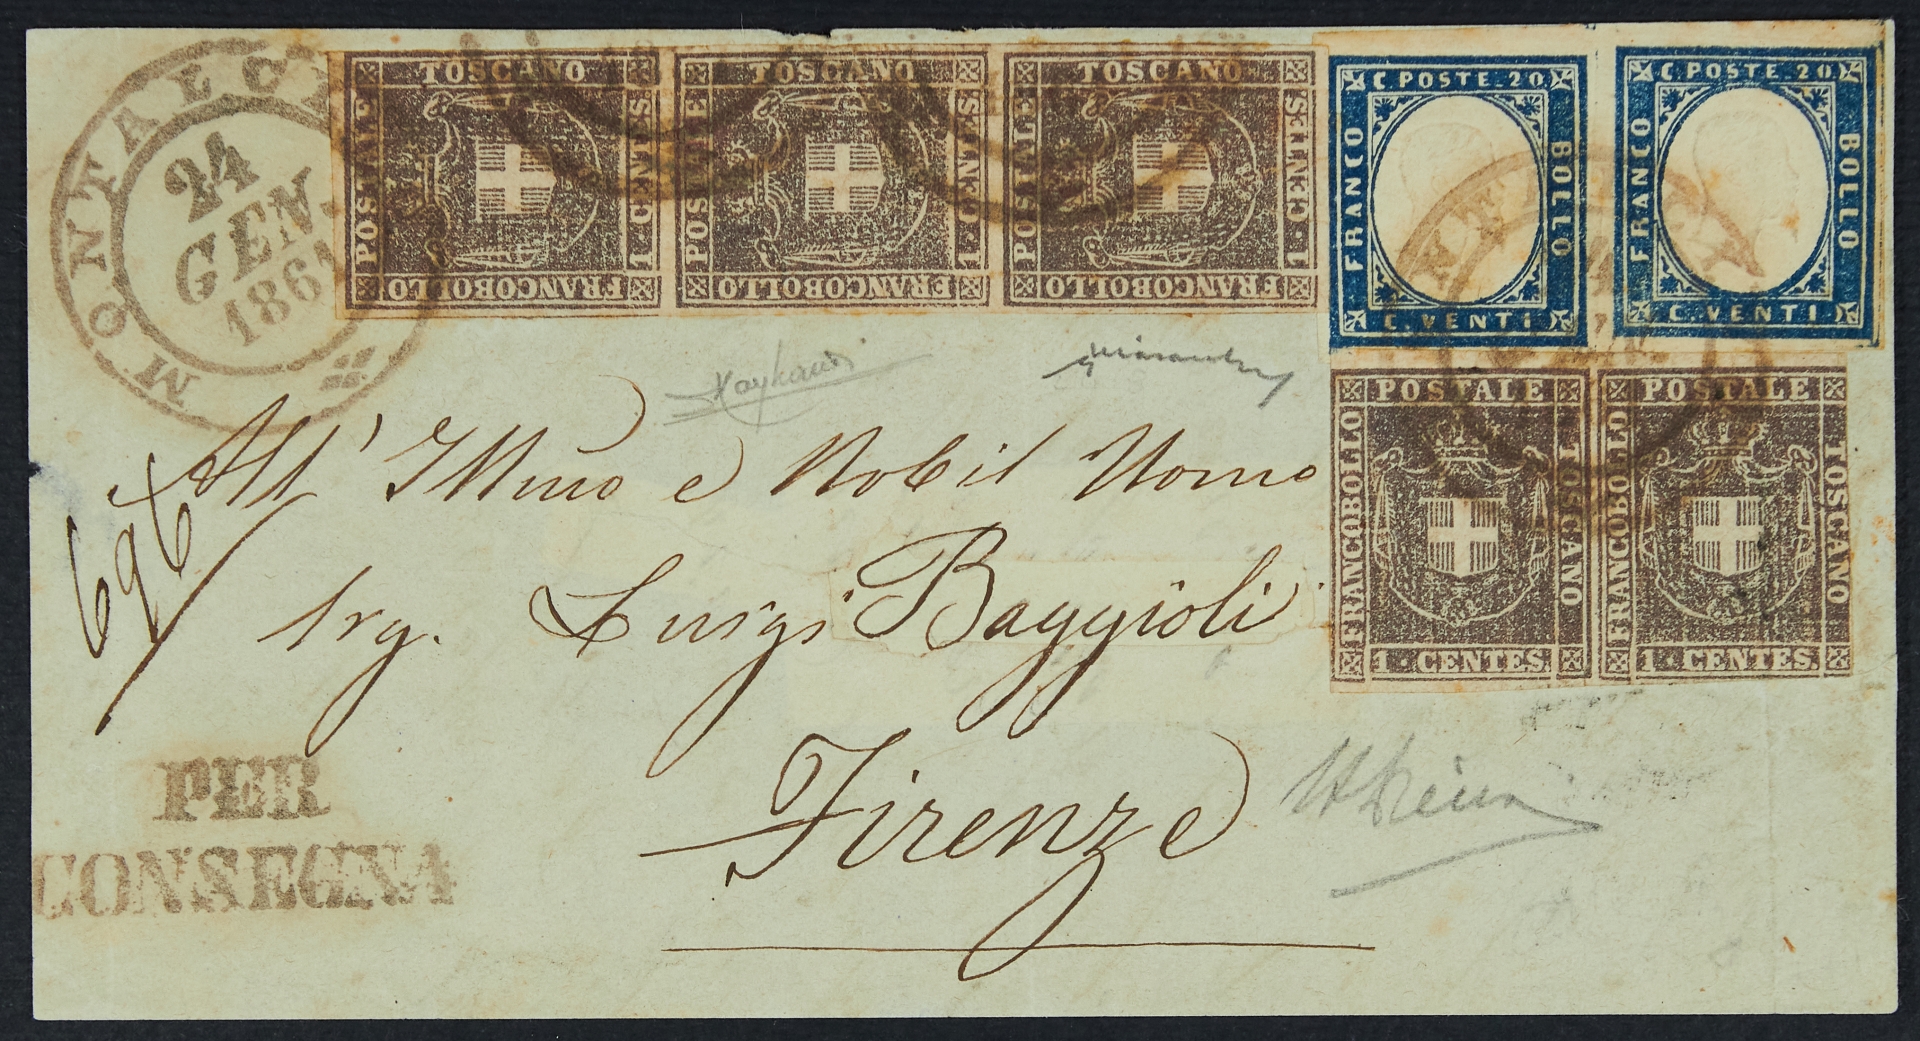 MONTALCINO
24
GEN.
1861
POSTALE TOSCANO 1 CENTES. FRANCOBOLLO
POSTALE TOSCANO 1 CENTES. FRANCOBOLLO
POSTALE TOSCANO 1 CENTES. FRANCOBOLLO
C POSTE 20
FRANCO BOLLO
C. VENTI
C POSTE 20
FRANCO BOLLO
C. VENTI
FRANCOBOLLO POSTALE TOSCANO 1 CENTES.
FRANCOBOLLO POSTALE TOSCANO 1 CENTES.
696
All' Illmo e Nobil Uomo
Sig. Luigi Baggioli
Firenze
PER
CONSEGNA